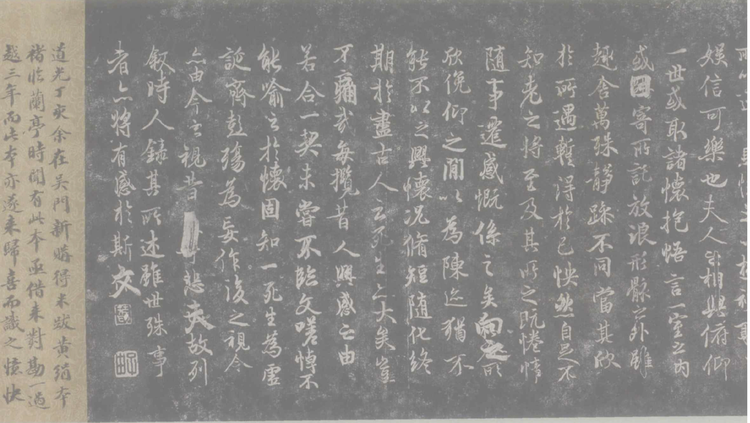 娛信可樂也夫人之相與俯仰
一世或取諸懷抱悟言一室之内
或因寄所託放浪形骸之外雖
趣舍萬殊靜躁不同當其欣
於所遇輒得於己怏然自足不
知老之將至及其所之既惓情
隨事遷感慨係之矣向之所
欣俛仰之閒以為陳迹猶不
能不以之興懷況脩短隨化終
期於盡古人云死生亦大矣豈
不痛哉每攬昔人興感之由
若合一契未嘗不臨文嗟悼不
能喻之於懷固知一死生為虛
誕齊彭殤為妄作後之視今
亦由今之視昔悲夫故列
敘時人錄其所述雖世殊事
者亦將有感於斯文
道光丁亥余在吳門新購得米跋黃絹本
褚臨蘭亭時聞有此本亟借来對勘一過
越三年而此本亦遂来歸喜而識之憶快